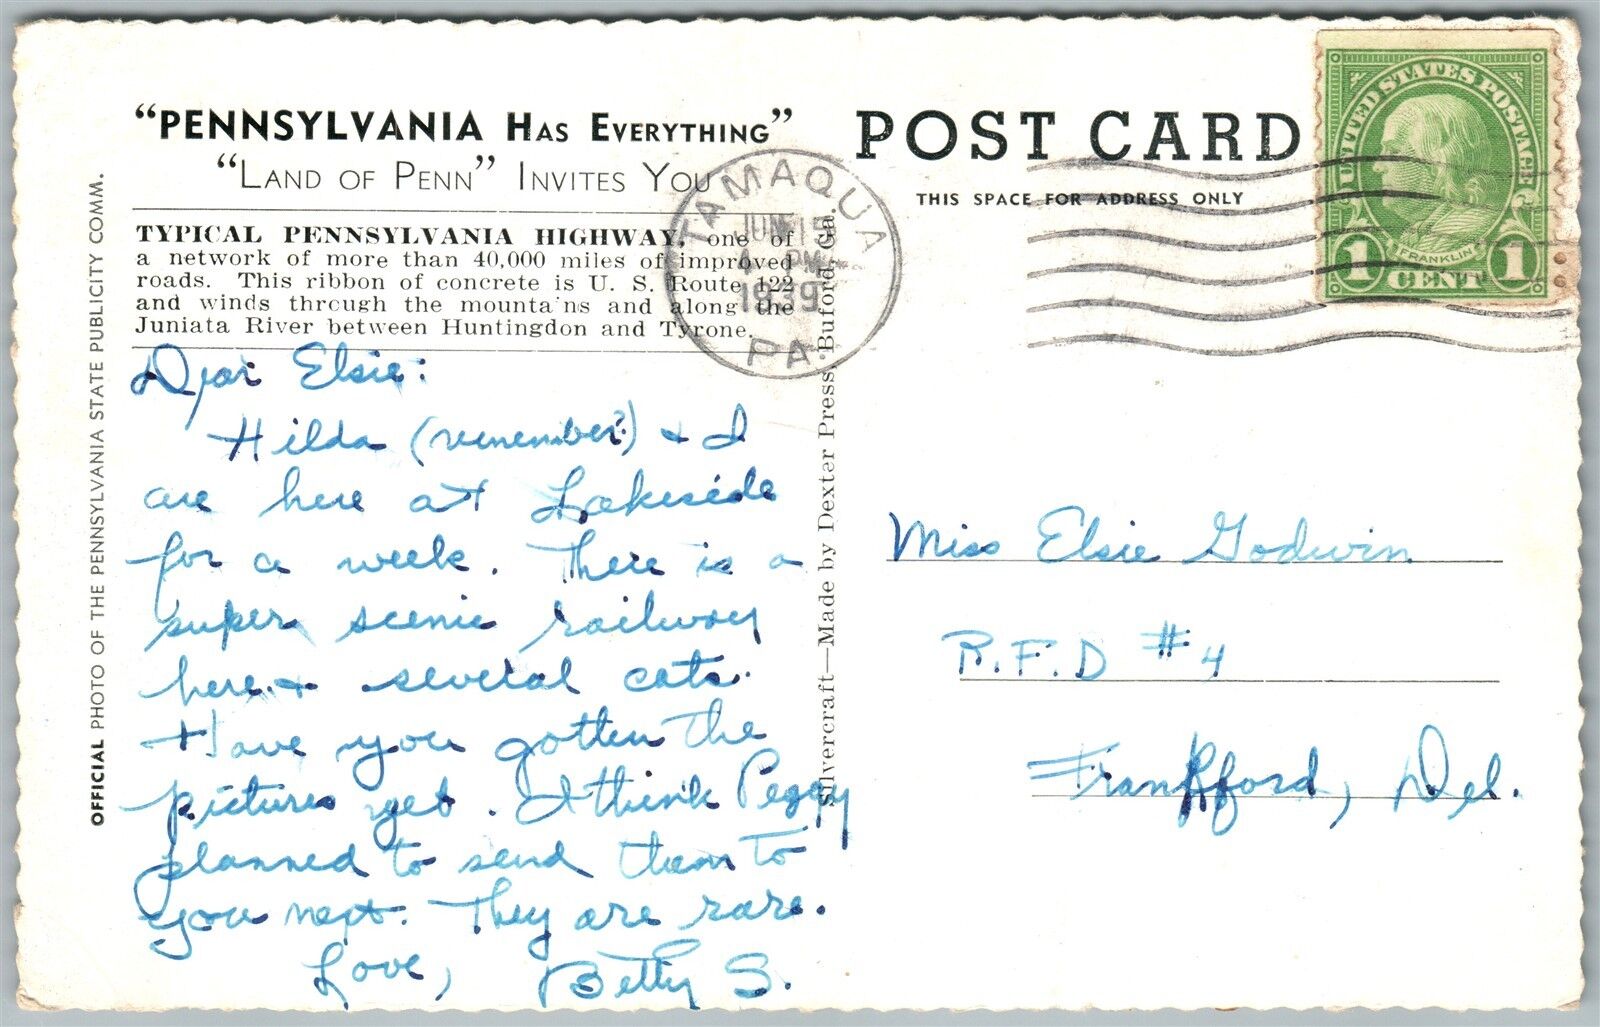 "PENNSYLVANIA HAS EVERYTHING"
"LAND OF PENN" INVITES YOU
TYPICAL PENNSYLVANIA HIGHWAY, one of
a network of more than 40,000 miles of improved
roads. This ribbon of concrete is U. S. Route 122
and winds through the mountains and along the
Juniata River between Huntingdon and Tyrone.
OFFICIAL PHOTO OF THE PENNSYLVANIA STATE PUBLICITY COMM.
Dear Elsie:
Hilda (remember?) & I
are here at Lakeside
for a week. There is a
super scenic railway
here & several cats.
Have you gotten the
pictures yet. I think Peggy
planned to send them to
you next. They are rare.
Love, Betty S.
Silvercraft—Made by Dexter Press, Buford, Ga.
POST CARD
THIS SPACE FOR ADDRESS ONLY
TAMAQUA
JUN
PM
1939
PA.
UNITED STATES POSTAGE
FRANKLIN
1 CENT 1
Miss Elsie Godwin
R.F.D #4
Frankford, Del.